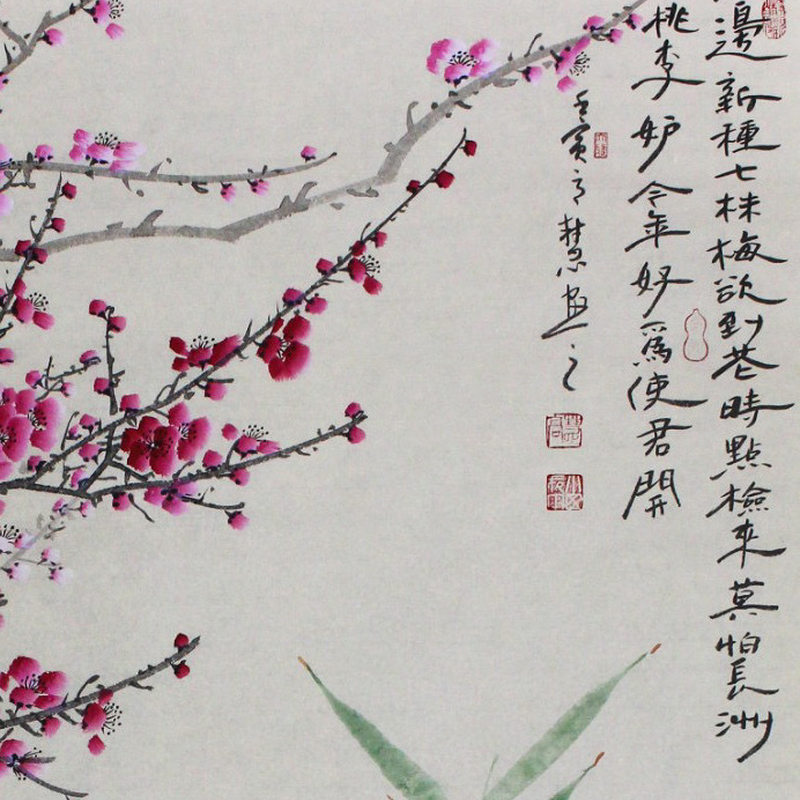 邊新種七株梅欲到花時點檢來莫怕長洲
桃李妒今年好爲使君開
壬寅慧畫之